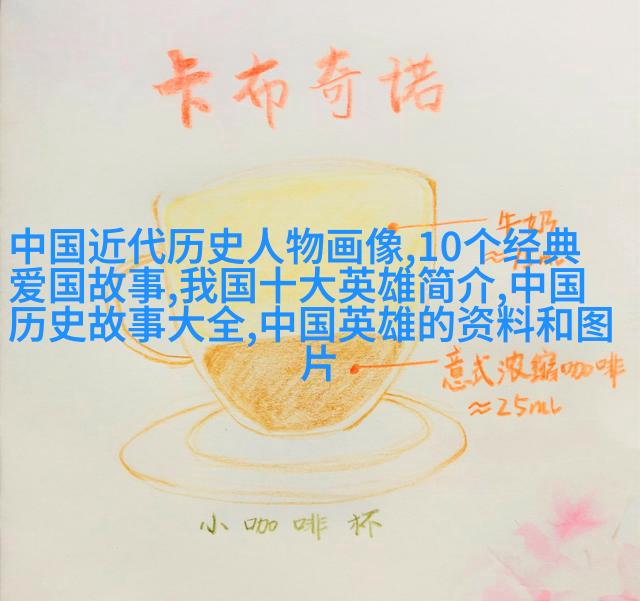 卡布奇诺
牛奶
中国近代历史人物画像,10个经典
爱国故事,我国十大英雄简介,中国
历史故事大全,中国英雄的资料和图
片
意式浓缩咖啡
≈25ml
小咖啡杯